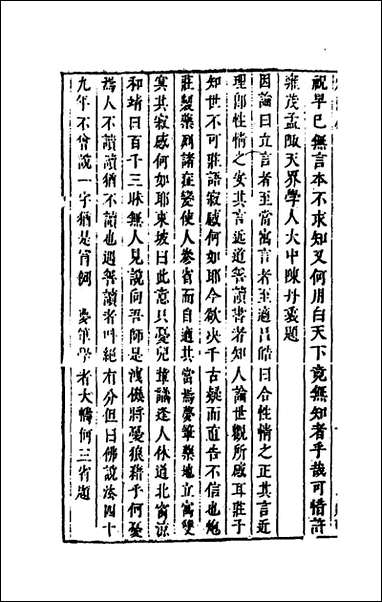 祝早已無言本不求知又何用白天下竟無知者乎哉可惜許
雍茂孟陬天界學人大中陳丹衷題
因論曰立言者至當寓言者至適呂皓曰合性情之正其言近
理郎性情之安其言近道善讀書者知人論世觀所感耳莊子
知世不可莊語寂感何如耶今欲決千古疑而直告不信也炮
莊製藥列諸症變使人參省而自適其當焉夢筆藥地立寓雙
冥其寂感何如耶東坡曰此意只憂兒 議逢人休道北窗涼
和靖曰百千三昧無人見說向吾師是洩機將憂狼藉乎何憂
為人不讀讀猶不讀也遇善讀者叫絕有分但曰佛說法四十
九年不曾說一字猶是實例 夢筆學者大 何三省題